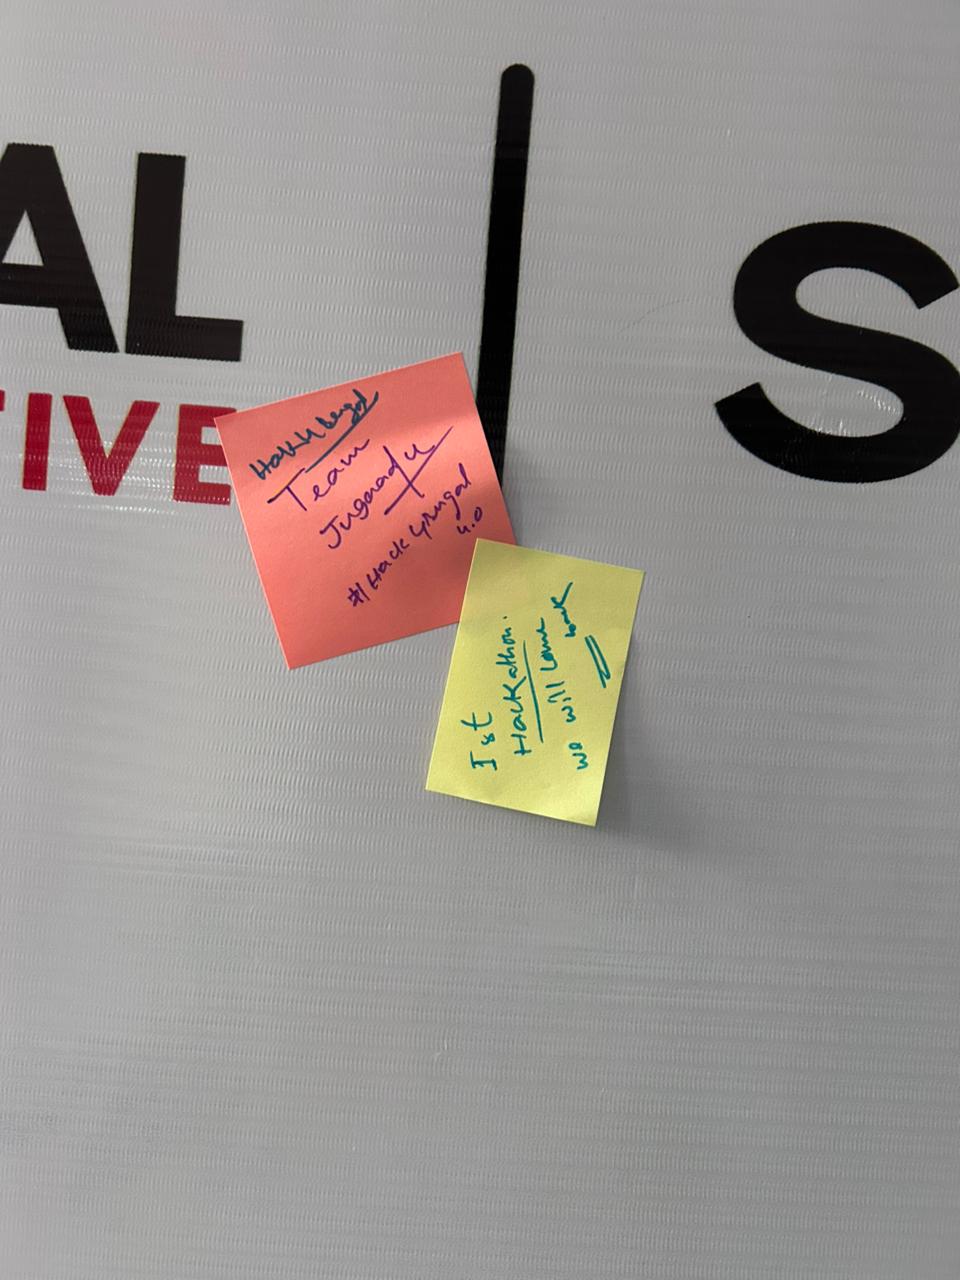 AL
TIVE
S
Hack4Bengal
Team
Jugaadu
#Hack4Bengal
4.0
1st
Hackathon.
we will come
back